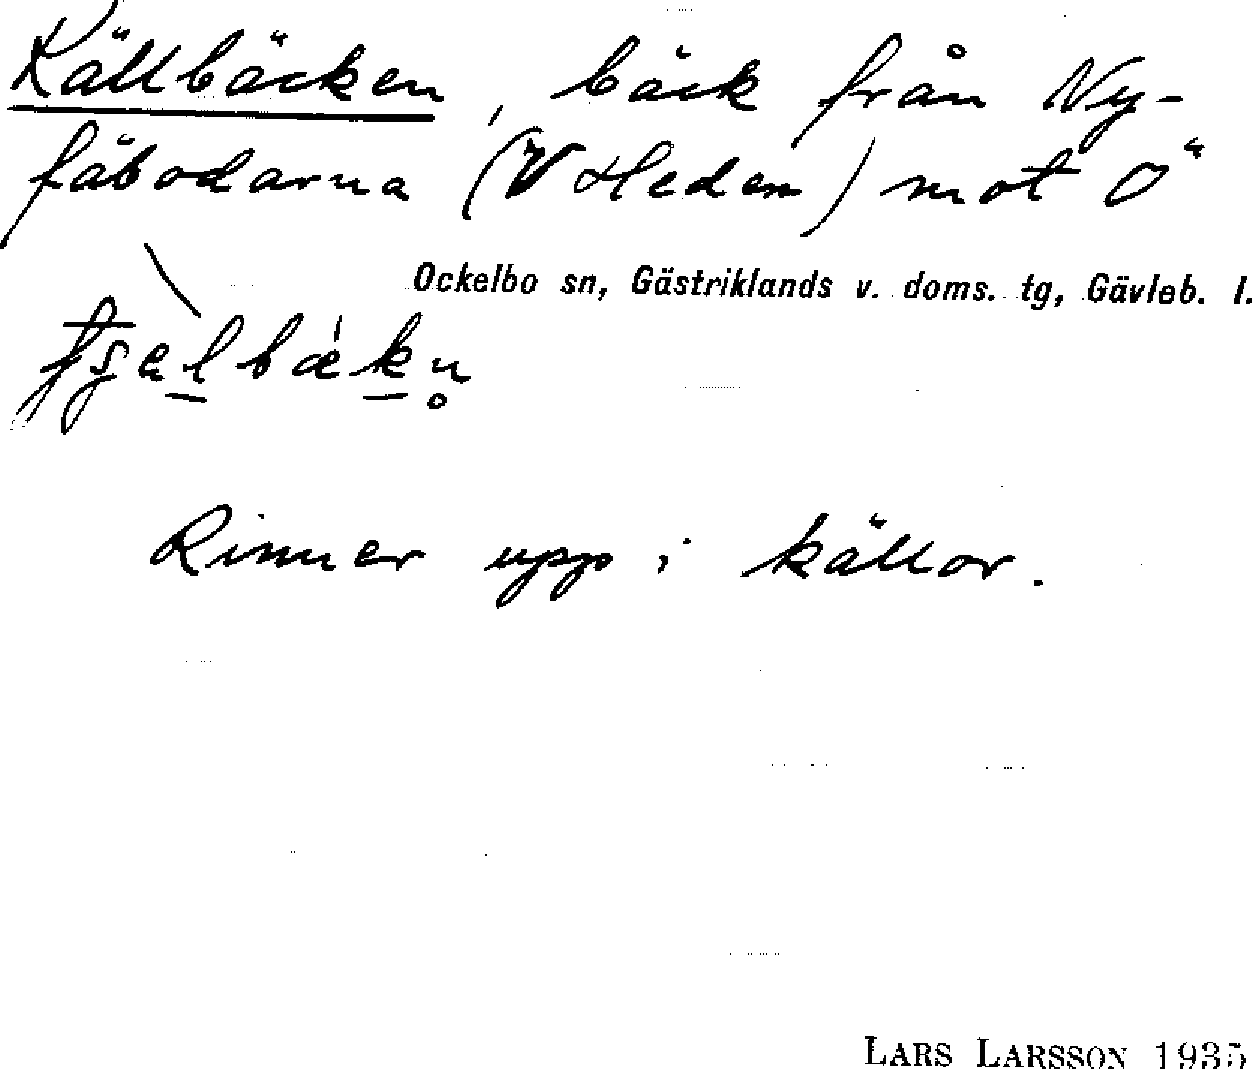 Källbäcken, bäck från Ny-
fäbodarna (V Heden) mot Ö
Ockelbo sn, Gästriklands v. doms. tg, Gävleb. l.
Rinner upp i källor.
LARS LARSSON 1935